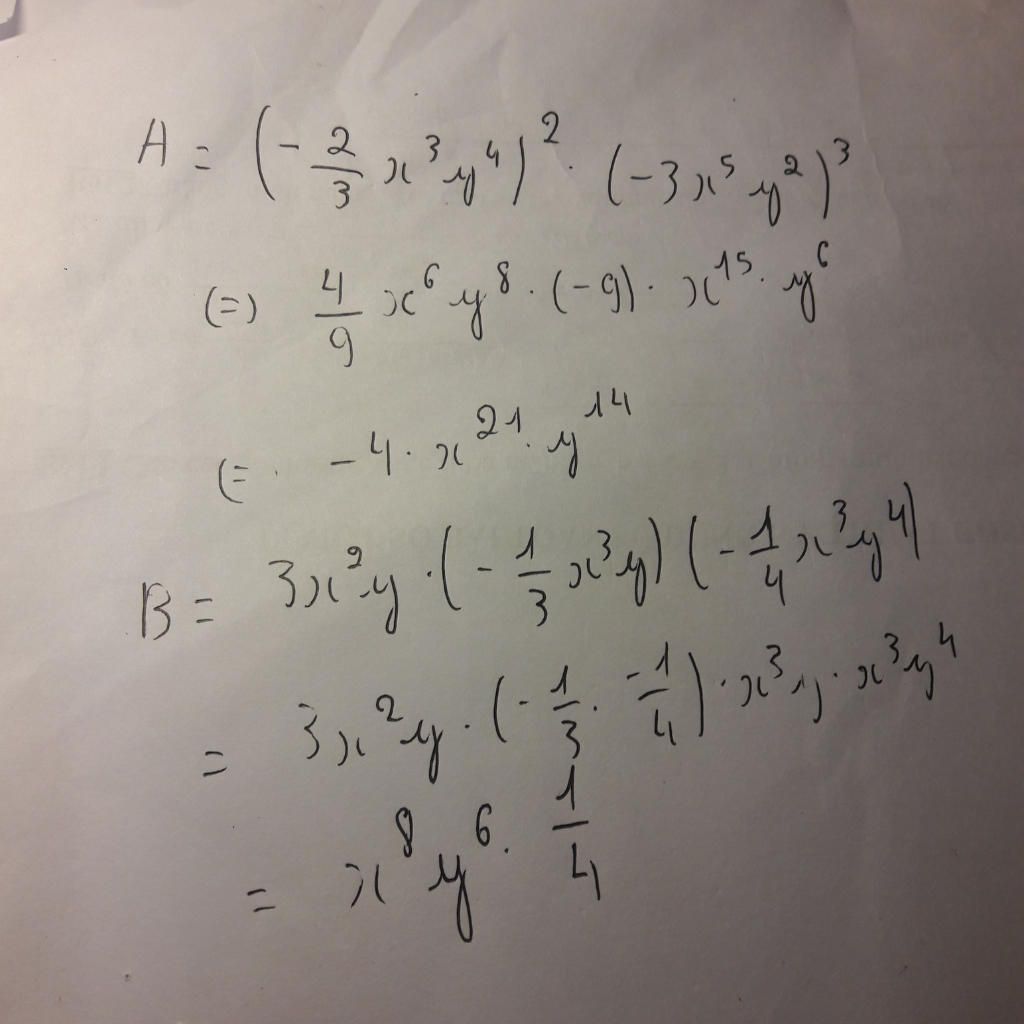 A = (-2/3 x³y⁴)² · (-3x⁵y²)³
(=) 4/9 x⁶y⁸ · (-9) · x¹⁵ · y⁶
(= · -4 · x²¹ · y¹⁴
B = 3x²y · (-1/3 x³y) (-1/4 x³y⁴)
= 3x²y · (-1/3 · -1/4) · x³y · x³y⁴
= x⁸y⁶ · 1/4